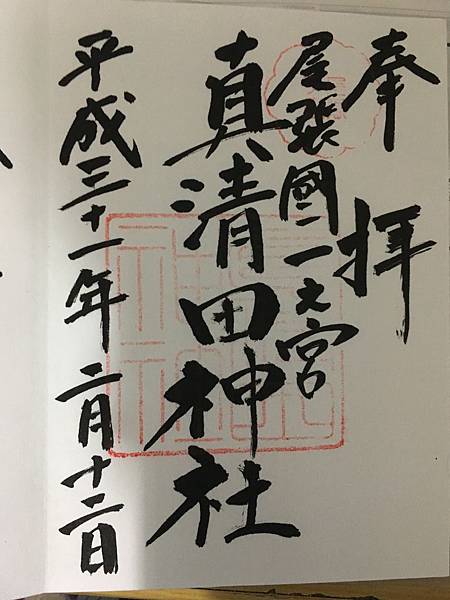 奉拝
尾張國一之宮
真清田神社
平成三十一年二月十二日